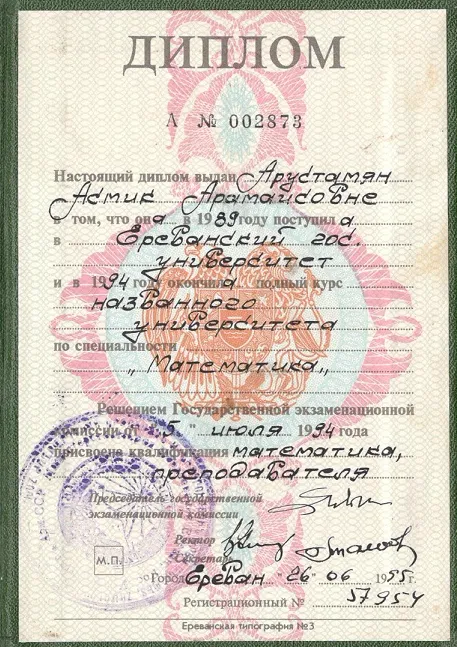 ДИПЛОМ
А № 002873
Настоящий диплом выдан Арустамян
Асмик Арамаисовне
в том, что она в 1989 году поступила
в Ереванский гос.
университет
и в 1994 году окончила полный курс
названного
университета
по специальности
„Математика„
Решением Государственной экзаменационной
комиссии от "5" июля 1994 года
присвоена квалификация математика,
преподавателя
Председатель государственной
экзаменационной комиссии
Ректор
Секретарь
М.П.
Город Ереван "26" 06 1995 г.
Регистрационный № 57954
Ереванская типография №3